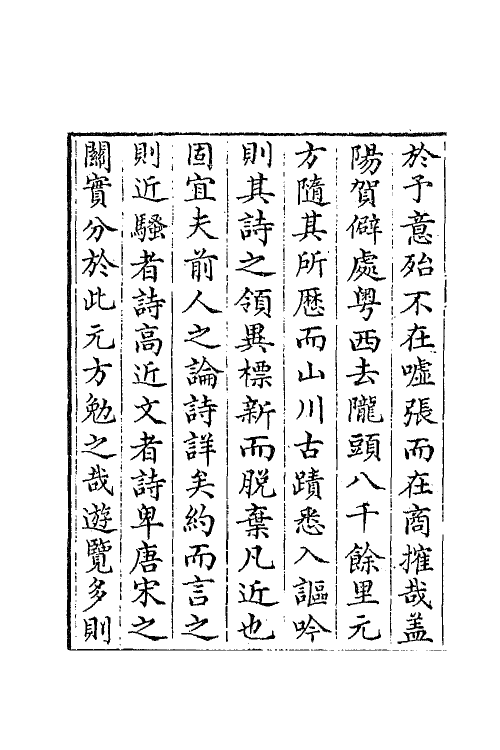 於予意殆不在噓張而在商搉哉盖
陽賀僻處粤西去隴頭八千餘里元
方隨其所歴而山川古蹟悉入謳吟
則其詩之領異標新而脱棄凡近也
固宜夫前人之論詩詳矣約而言之
則近騷者詩高近文者詩卑唐宋之
關實分於此元方勉之哉遊覽多則